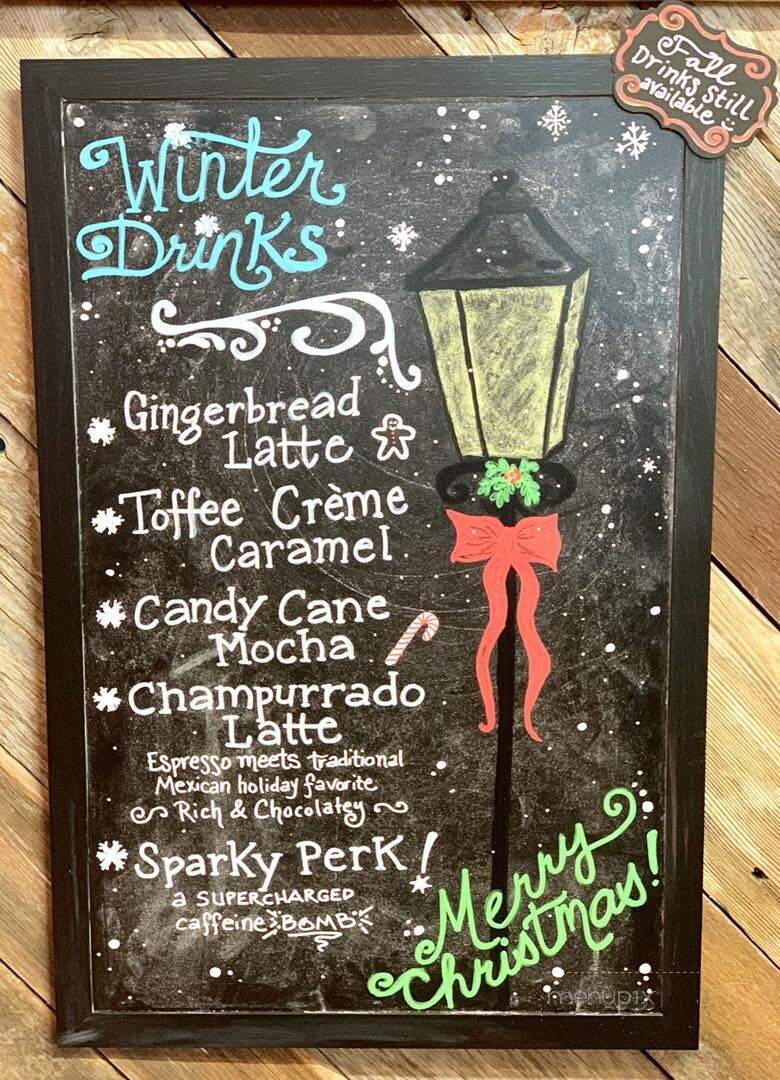 Fall
Drinks Still
available
Winter
Drinks
Gingerbread
Latte
Toffee Crème
Caramel
Candy Cane
Mocha
Champurrado
Latte
Espresso meets traditional
Mexican holiday favorite
Rich & Chocolatey
Sparky Perk!
a SUPERCHARGED
caffeine BOMB
Merry
Christmas!
menupix